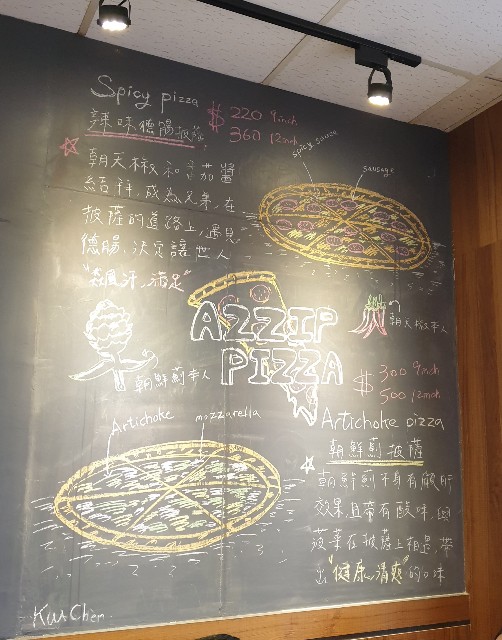 Spicy pizza
$ 220 9inch
360 12inch
辣味德腸披薩
spicy sauce
sausage
朝天椒和番茄醬
結拜,成為兄弟,在
披薩的道路上,遇見
德腸,決定讓世人
汗,滿足"
AZZIP
PIZZA
朝天椒本人
朝鮮薊本人
$ 300 9inch
500 12inch
Artichoke pizza
朝鮮薊披薩
Artichoke
mozzarella
朝鮮薊本身有顧肝
效果,且帶有酸味,與
菠菜在披薩上相遇,帶
出"健康,清爽"的口味
Kurt Chen